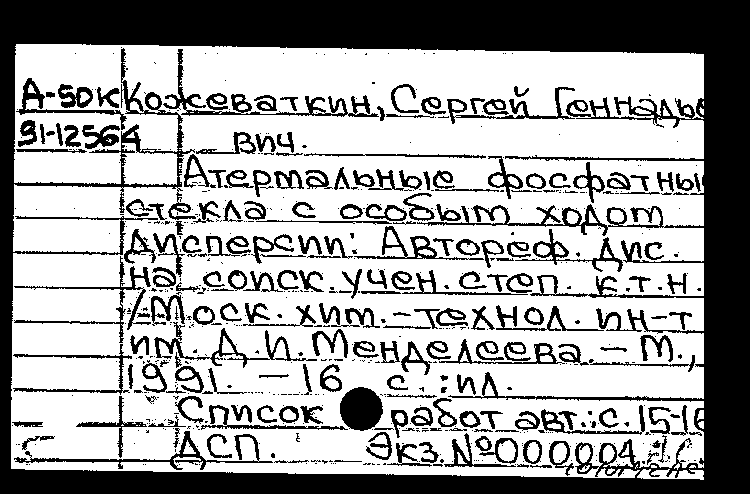 А-50К Кожеваткин, Сергей Геннадье
91-12564 вич.
Атермальные фосфатны
стекла с особым ходом
дисперсии: Автореф. дис.
на соиск. учен. степ. к.т.н.
/Моск. хим.-технол. ин-т
им. Д.И. Менделеева. - М.,
1991. - 16 с.: ил.
Список работ авт.: с. 15-16
ДСП. Экз. №000004